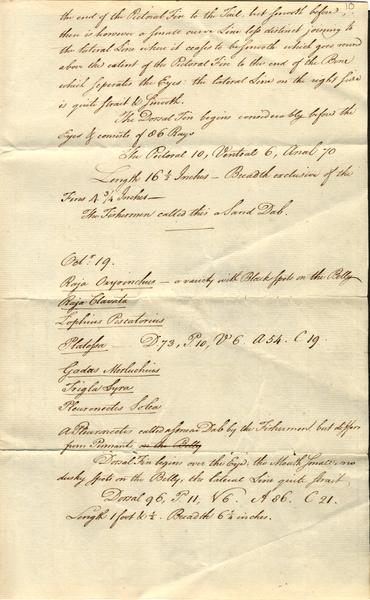 the end of the Pectoral Fin to the Tail, but smooth before,
there is however a small curve Line less distinct joining to
the lateral Line where it ceases to be smooth which goes round
above the extent of the Pectoral Fin to the end of the Bone
which seperates the Eyes: the lateral Line on the right side
is quite strait & smooth.
The Dorsal Fin begins considerably before the
Eyes & consists of 86 Rays
The Pectoral 10, Ventral 6, Anal 70
Length 16 ½ Inches — Breadth exclusive of the
Fins 4 ¾ Inches —
The Fishermen called this a Sand Dab.
Octr. 19.
Raja Oxyrinchus — a variety with Black spots on the Belly
Raja Clavata
Lophius Piscatorius
Platessa — D 73, P. 10, V 6. A 54. C 19.
Gadus Merluchius
Trigla Lyra
Pleuronectes Solea
A Pleuronectes called a Dab by the Fishermen, but differs
from Pennants, on the Belly
Dorsal Fin begins over the Eye, the Mouth small, no
dusky spots on the Belly, the lateral Line quite strait,
Dorsal 96, P 11, V 6. A 86. C 21.
Length 1 foot & ½. Breadth 6 ½ inches.